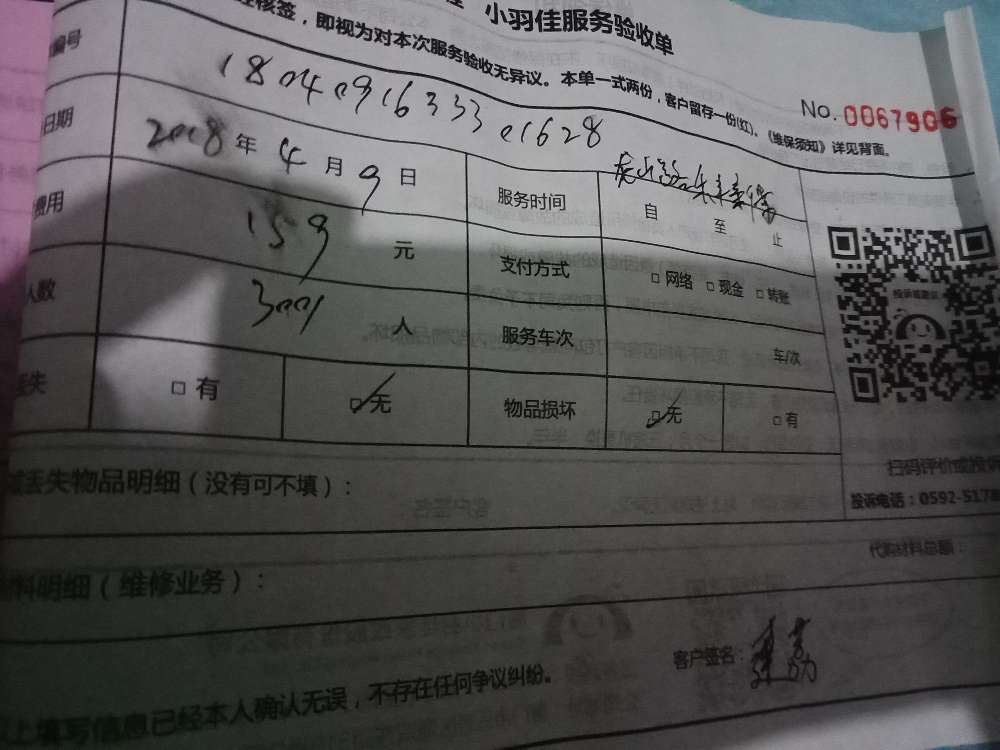 小羽佳服务验收单
核签，即视为对本次服务验收无异议。本单一式两份，客户留存一份(红)。《维保须知》详见背面。
No. 0067906
编号 180409163330 1628
日期 2018年4月9日 服务时间 自 至 止
费用 159元 支付方式 □网络 □现金 □转账
人数 人 服务车次 车/次
丢失 □有 ☑无 物品损坏 ☑无 □有
投诉或建议
扫码评价或投诉
投诉电话：0592-5178
丢失物品明细（没有可不填）：
代购材料总额：
料明细（维修业务）：
客户签名：
以上填写信息已经本人确认无误，不存在任何争议纠纷。